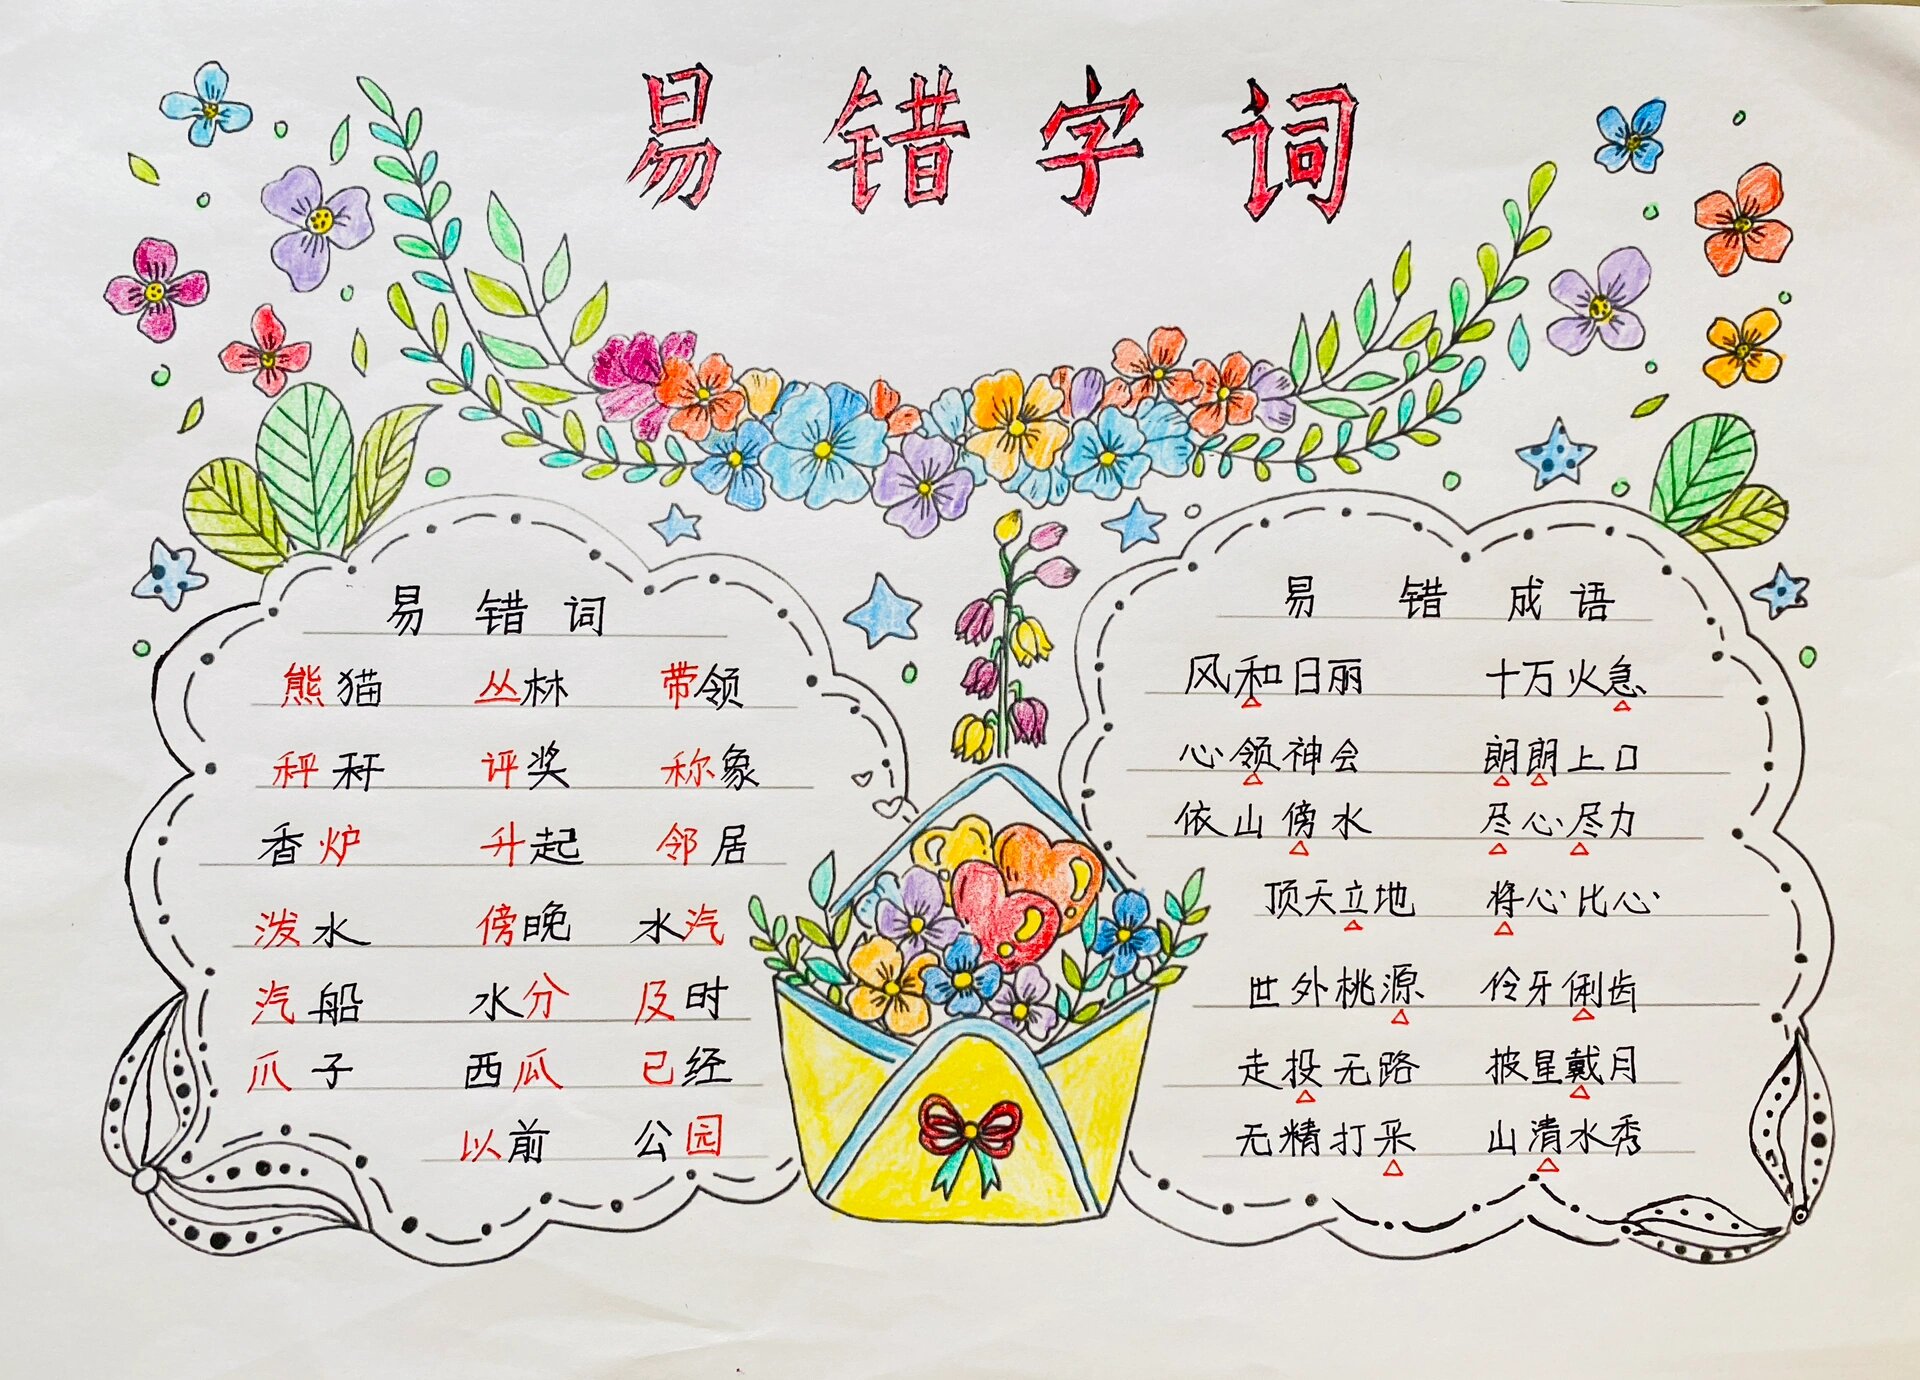 易错字词
易错词
熊猫 丛林 带领
秤秆 评奖 称象
香炉 升起 邻居
泼水 傍晚 水汽
汽船 水分 及时
爪子 西瓜 已经
以前 公园
易错成语
风和日丽 十万火急
心领神会 朗朗上口
依山傍水 尽心尽力
顶天立地 将心比心
世外桃源 伶牙俐齿
走投无路 披星戴月
无精打采 山清水秀